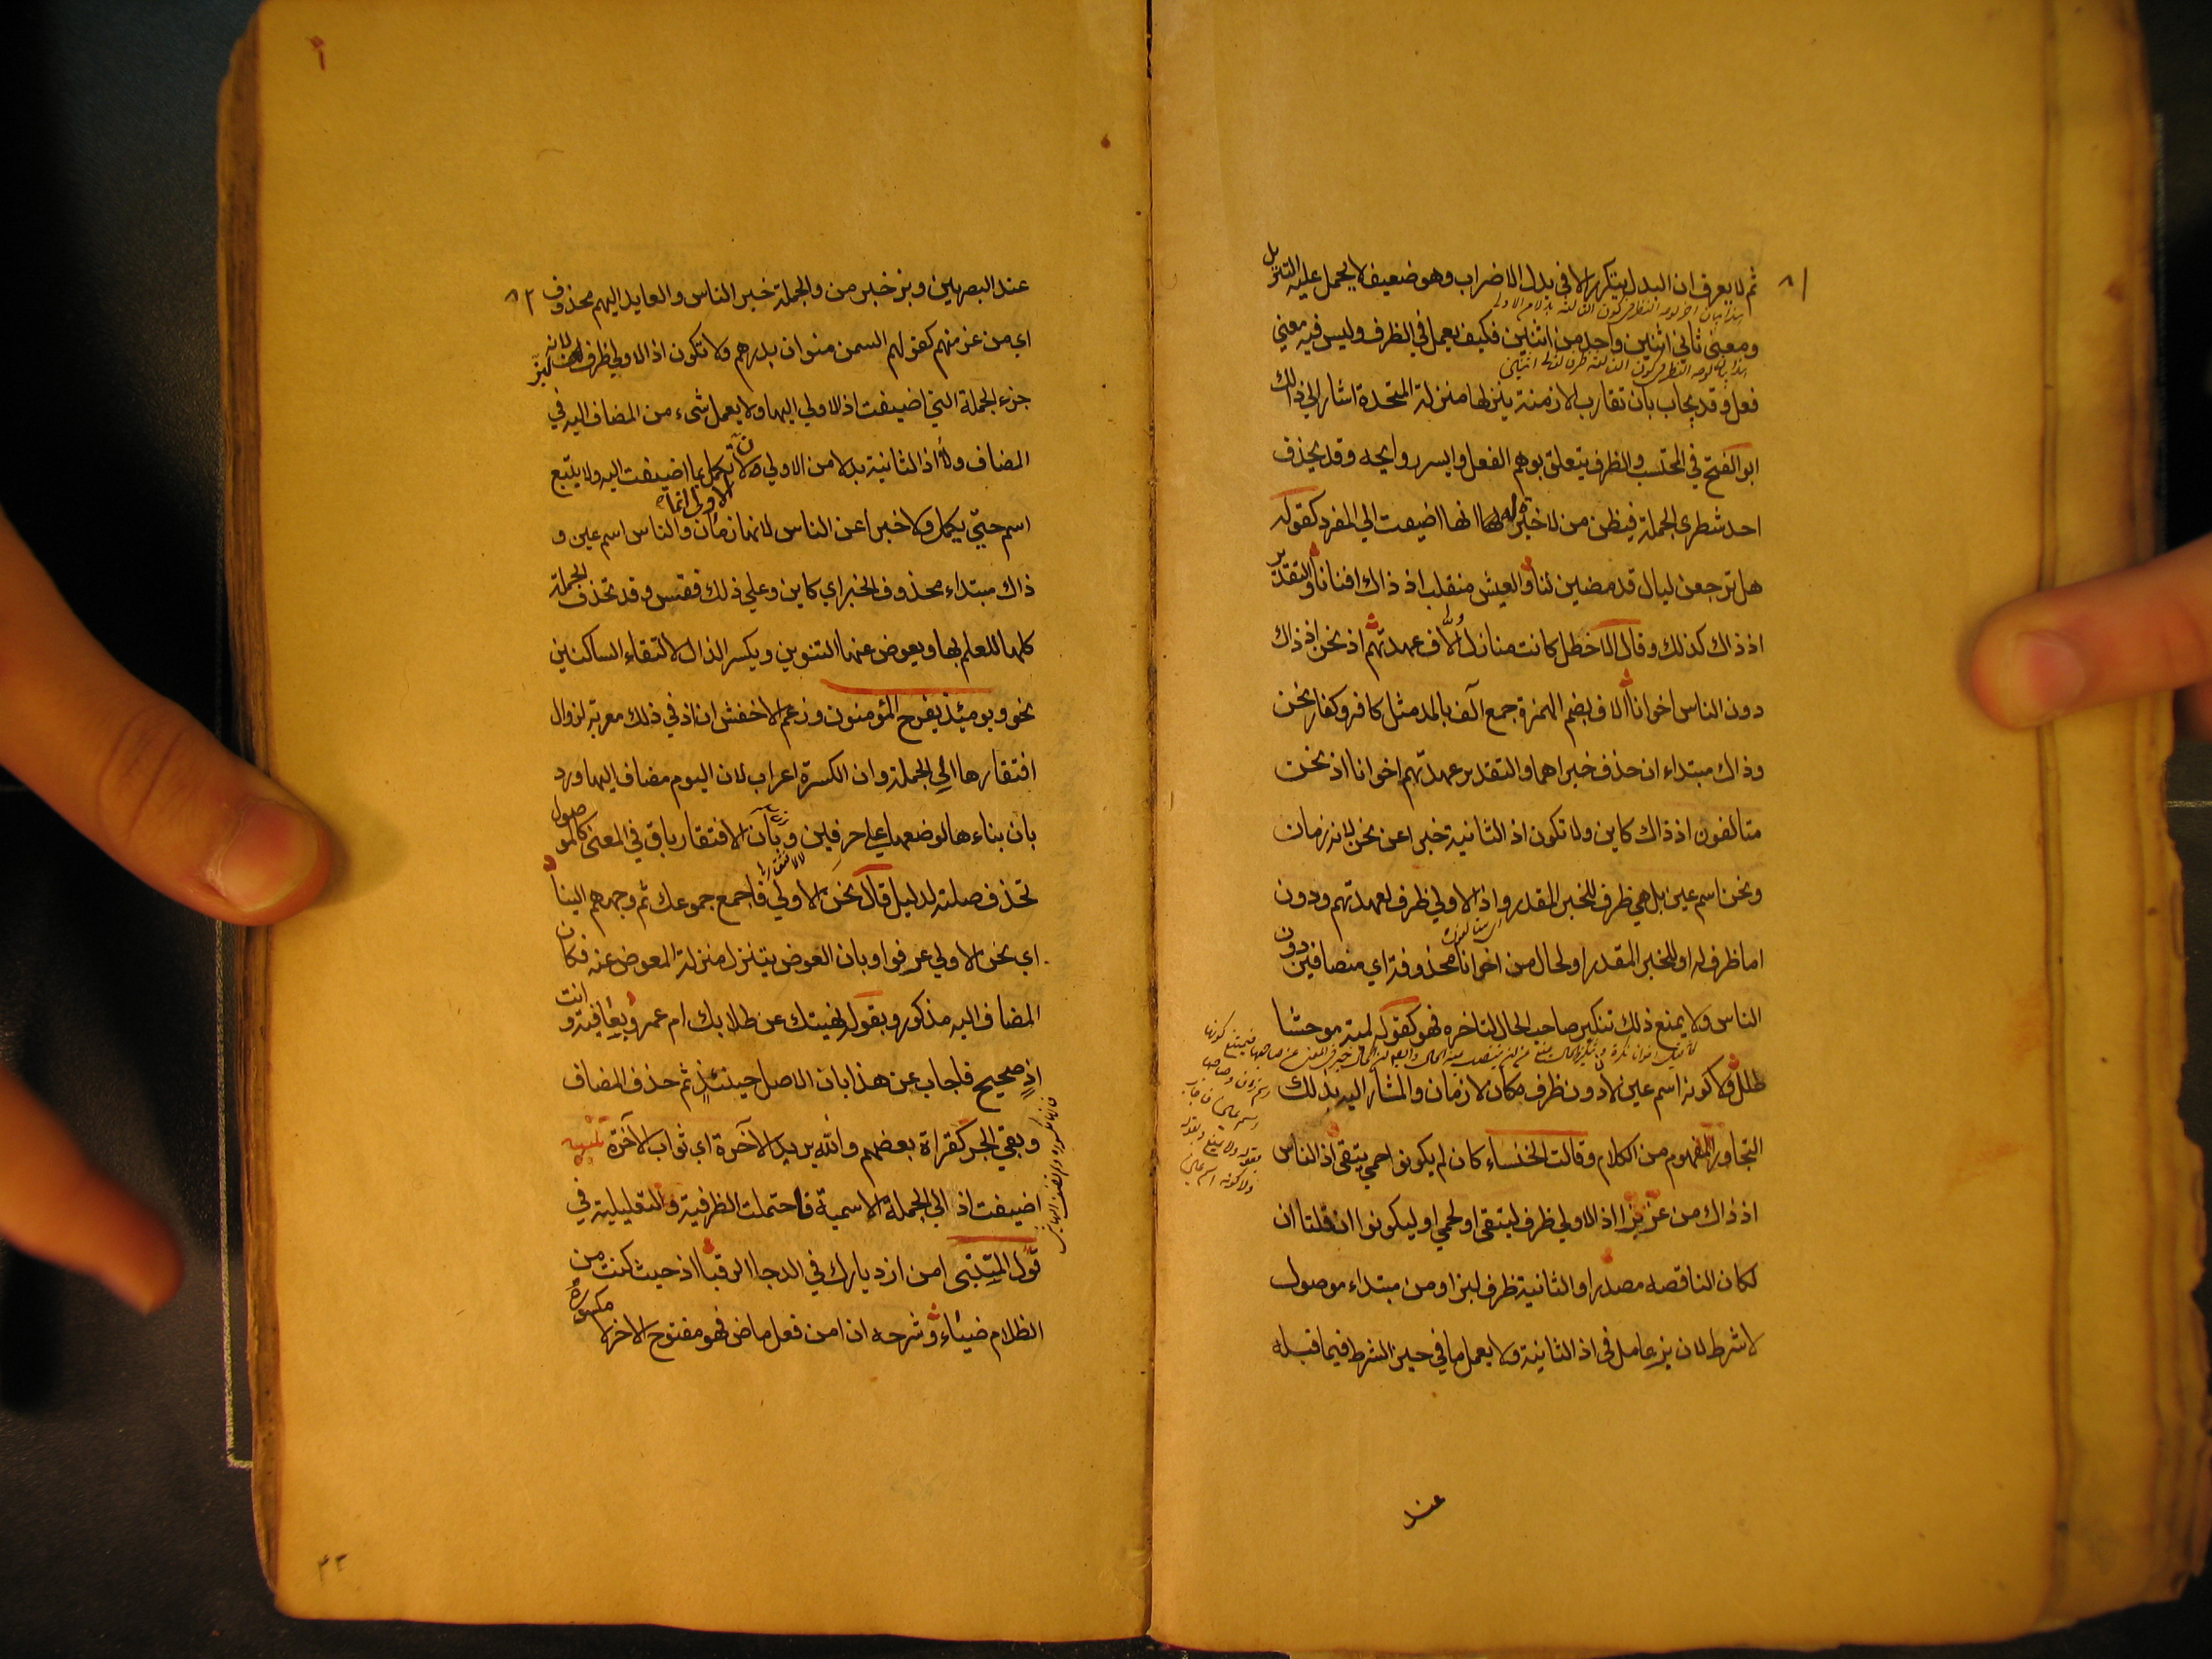 ٨١
ثم لا يعرف ان البدل يتكرر الا في بدل الاضراب وهو ضعيف لا يحمل عليه التنزيل
ومعنى ثاني اثنين واحد من اثنين فكيف يعمل في الظرف وليس فيه معنى
فعل وقد يجاب بان تقارب الازمنة ينزلها منزلة المتحدة اشار الى ذلك
ابو الفتح في المحتسب والظرف يتعلق بوهم الفعل وايسر روايحه وقد يحذف
احد شطري الجملة فيظن من لا خبرة له انها اضيفت الي المفرد كقوله
هل ترجعن ليال قد مضين لنا والعيش منقلب اذ ذاك افنانا والتقدير
اذ ذاك كذلك وقال الاخطل كانت منازل ألاف عهدتهم اذ نحن اذ ذاك
دون الناس اخوانا ألاف بضم الهمزة جمع آلف بالمد مثل كافر وكفار نحن
وذاك مبتداء ان حذف خبراهما والتقدير عهدتهم اخوانا اذ نحن
متالفون اذ ذاك كاين ولا تكون اذ الثانية خبرا عن نحن لانه زمان
ونحن اسم عين بل هي ظرف للخبر المقدر واذ الاولي ظرف لعهدتهم ودون
اما ظرف له او للخبر المقدر او لحال من اخوانا محذوفة اي متصافين دون
الناس ولا يمنع ذلك تنكير صاحب الحال لتاخره فهو كقوله لمية موحشا
طلل ولا كونه اسم عين لان دون ظرف مكان لا زمان والمشار اليه بذلك
التجاور المفهوم من الكلام وقالت الخنساء كان لم يكونوا حمي يتقى اذ الناس
اذ ذاك من عز بزا اذ الاولي ظرف ليتقى او لحمي او ليكونوا ان قلنا ان
لكان الناقصه مصدرا والثانية ظرف لبز او من مبتداء موصول
لا شرط لان بز عامل في اذ الثانية ولا يعمل ما في حيز الشرط فيما قبله
عند
٨٢
عند البصريين وبز خبر من والجملة خبر الناس والعايد اليهم محذوف
اي من عز منهم كقولهم السمن منوان بدرهم ولا تكون اذ الاولي ظرف لبز لانه
جزء الجملة التي اضيفت اذ الاولي اليها ولا يعمل شيء من المضاف اليه في
المضاف ولا اذ الثانية بدلا من الاولي لانها تكمل بما اضيفت اليه ولا يتبع
اسم حتي يكمل ولا خبرا عن الناس لانها زمان والناس اسم عين و
ذاك مبتداء محذوف الخبر اي كاين وعلي ذلك فقس وقد تحذف الجملة
كلها للعلم بها ويعوض عنها التنوين ويكسر الذال لالتقاء الساكنين
نحو ويومئذ يفرح المؤمنون وزعم الاخفش ان اذ في ذلك معربة لزوال
افتقارها الي الجملة وان الكسرة اعراب لان اليوم مضاف اليها ورد
بان بناءها لوضعها علي حرفين وبان الافتقار باق في المعنى كالموصول
تحذف صلته لدليل قال نحن الاولي فاجمع جموعك ثم وجههم الينا
اي نحن الاولي عرفوا وبان العوض يتنزل منزلة المعوض عنه فكان
المضاف اليه مذكور وبقوله نهيتك عن طلابك ام عمرو بعافية وانت
اذ صحيح فاجاب عن هذا بان الاصل حينئذ ثم حذف المضاف
وبقي الجر كقراة بعضهم والله يريد الآخرة اي ثواب الآخرة تنبيه
اضيفت اذ الي الجملة الاسمية فاحتملت الظرفية والتعليلية في
قول المتنبى امن ازديارك في الدجا الرقبا اذ حيث كنت من
الظلام ضياء وشرحه ان امن فعل ماض فهو مفتوح الاخر لا مكسوره
٤٢